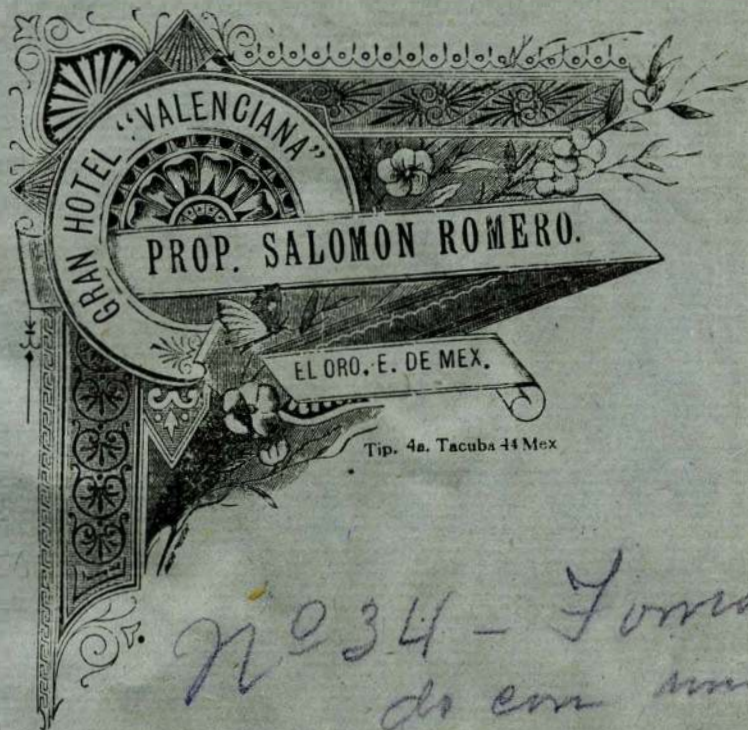 GRAN HOTEL "VALENCIANA"
PROP. SALOMON ROMERO.
EL ORO. E. DE MEX.
Tip. 4a. Tacuba 44 Mex
Nº 34 -
do con